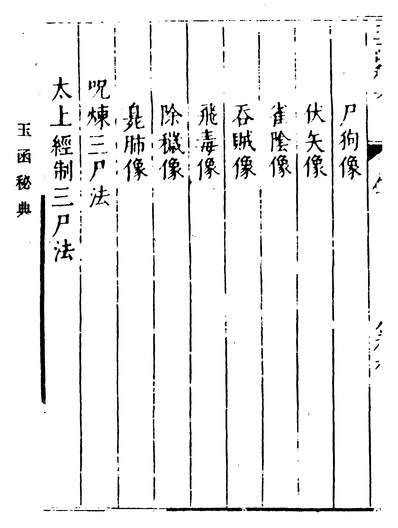 尸狗像
伏矢像
雀陰像
吞賊像
飛毒像
除穢像
臭肺像
呪煉三尸法
太上經制三尸法
玉函秘典